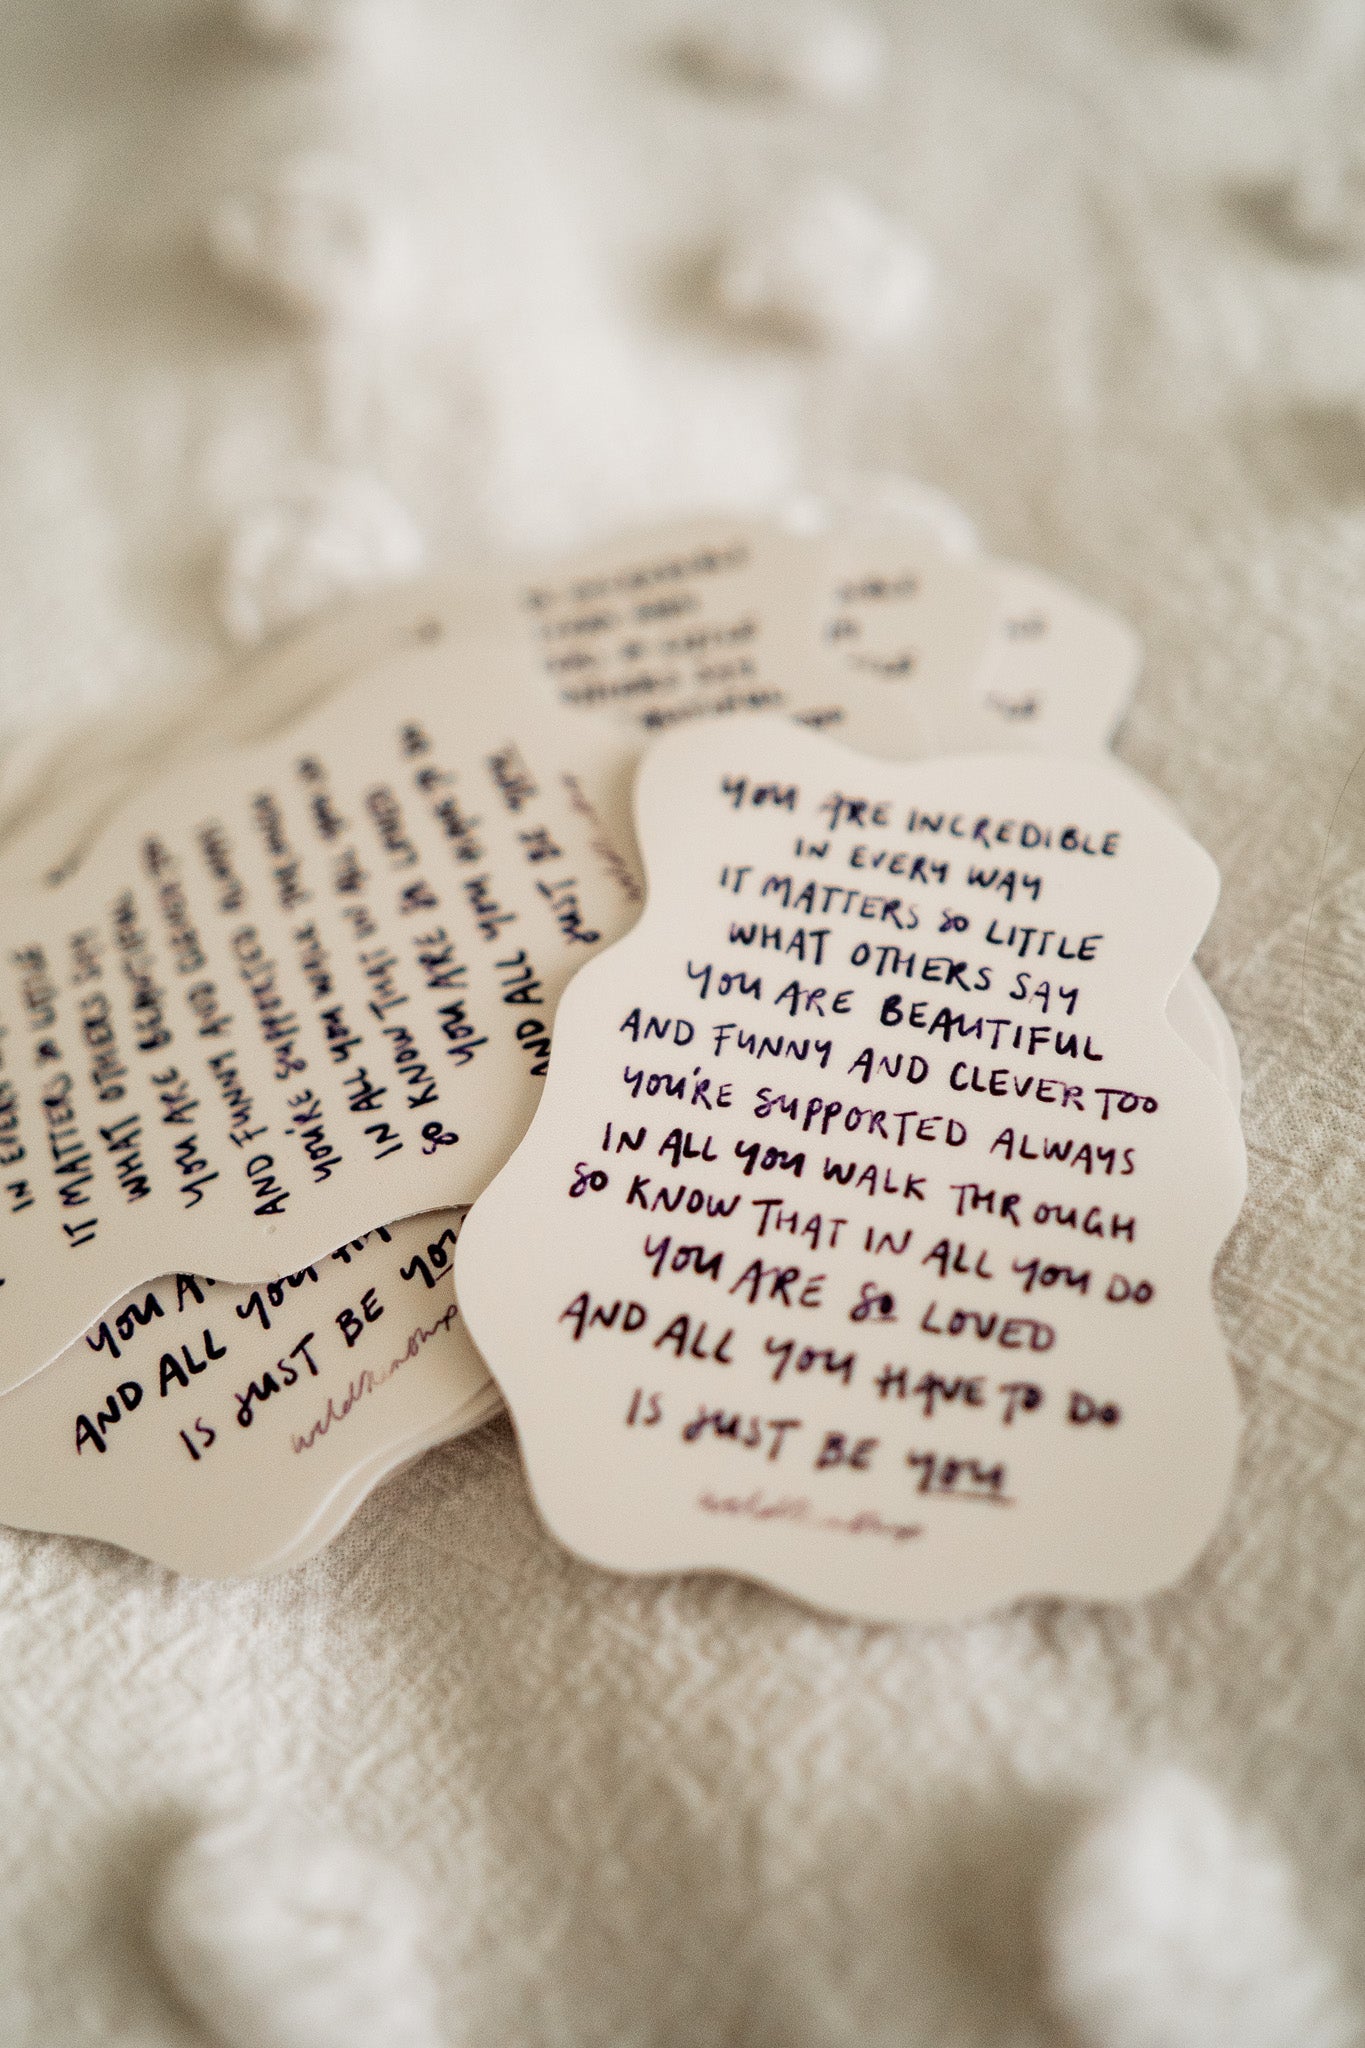 YOU ARE INCREDIBLE
IN EVERY WAY
IT MATTERS SO LITTLE
WHAT OTHERS SAY
YOU ARE BEAUTIFUL
AND FUNNY AND CLEVER TOO
YOU'RE SUPPORTED ALWAYS
IN ALL YOU WALK THROUGH
SO KNOW THAT IN ALL YOU DO
YOU ARE SO LOVED
AND ALL YOU HAVE TO DO
IS JUST BE YOU
IN EVERY
IT MATTERS SO LITTLE
WHAT OTHERS SAY
YOU ARE BEAUTIFUL
AND FUNNY AND CLEVER TOO
YOU'RE SUPPORTED ALWAYS
IN ALL YOU WALK THROUGH
SO KNOW THAT IN ALL YOU DO
YOU ARE SO LOVED
AND ALL YOU HAVE TO DO
JUST BE YOU
YOU
AND ALL YOU
IS JUST BE YOU